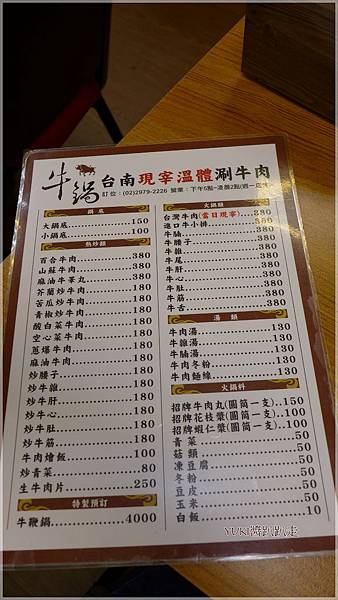 牛鍋 台南現宰溫體涮牛肉
訂位：(02)2979-2226 營業：下午5點~凌晨2點(週一店休)
鍋底
大鍋底 150
小鍋底 100
熱炒類
百合牛肉 380
山蘇牛肉 380
麻油牛睪丸 380
芥蘭炒牛肉 180
苦瓜炒牛肉 180
青椒炒牛肉 180
酸白菜牛肉 180
空心菜牛肉 180
蔥爆牛肉 180
麻油牛肉 180
炒腰子 180
炒牛雜 180
炒牛肝 180
炒牛心 180
炒牛肚 180
炒牛筋 180
牛肉燴飯 100
炒青菜 80
生牛肉片 250
特製預訂
牛鞭鍋 4000
火鍋類
台灣牛肉(當日現宰) 380
進口牛小排 380
牛腩 380
牛腰子 380
牛雜 380
牛尾 380
牛肝 380
牛心 380
牛肚 380
牛筋 380
牛舌 380
湯類
牛肉湯 130
牛雜湯 130
牛腩湯 130
牛肉冬粉 130
牛肉麵線 130
火鍋料
招牌牛肉丸(圓筒一支) 150
招牌花枝漿(圓筒一支) 100
招牌蝦仁漿(圓筒一支) 100
青菜 50
菇類 50
凍豆腐 50
冬粉 50
豆皮 50
玉米 50
白飯 10
YUKI醬趴趴走